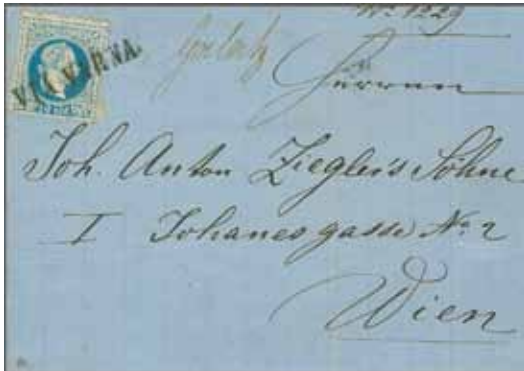 No. 1229
VIA VARNA.
Herren
Joh. Anton Ziegler's Söhne
I Johanesgasse No. 2
Wien